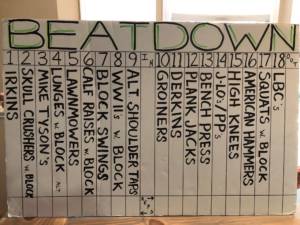 BEATDOWN
1 2 3 4 5 6 7 8 9 IN 10 11 12 13 14 15 16 17 18 OUT
IRKINS
SKULL CRUSHERS w. BLOCK
MIKE TYSON'S
LUNGES w. BLOCK ALT
LAWNMOWERS
CALF RAISES w. BLOCK
BLOCK SWINGS
WWII's w. BLOCK
ALT SHOULDER TAPS
GROINERS
DERKINS
PLANK JACKS
BENCH PRESS
J-LO's / PP's
HIGH KNEES
AMERICAN HAMMERS
SQUATS w. BLOCK
LBC's